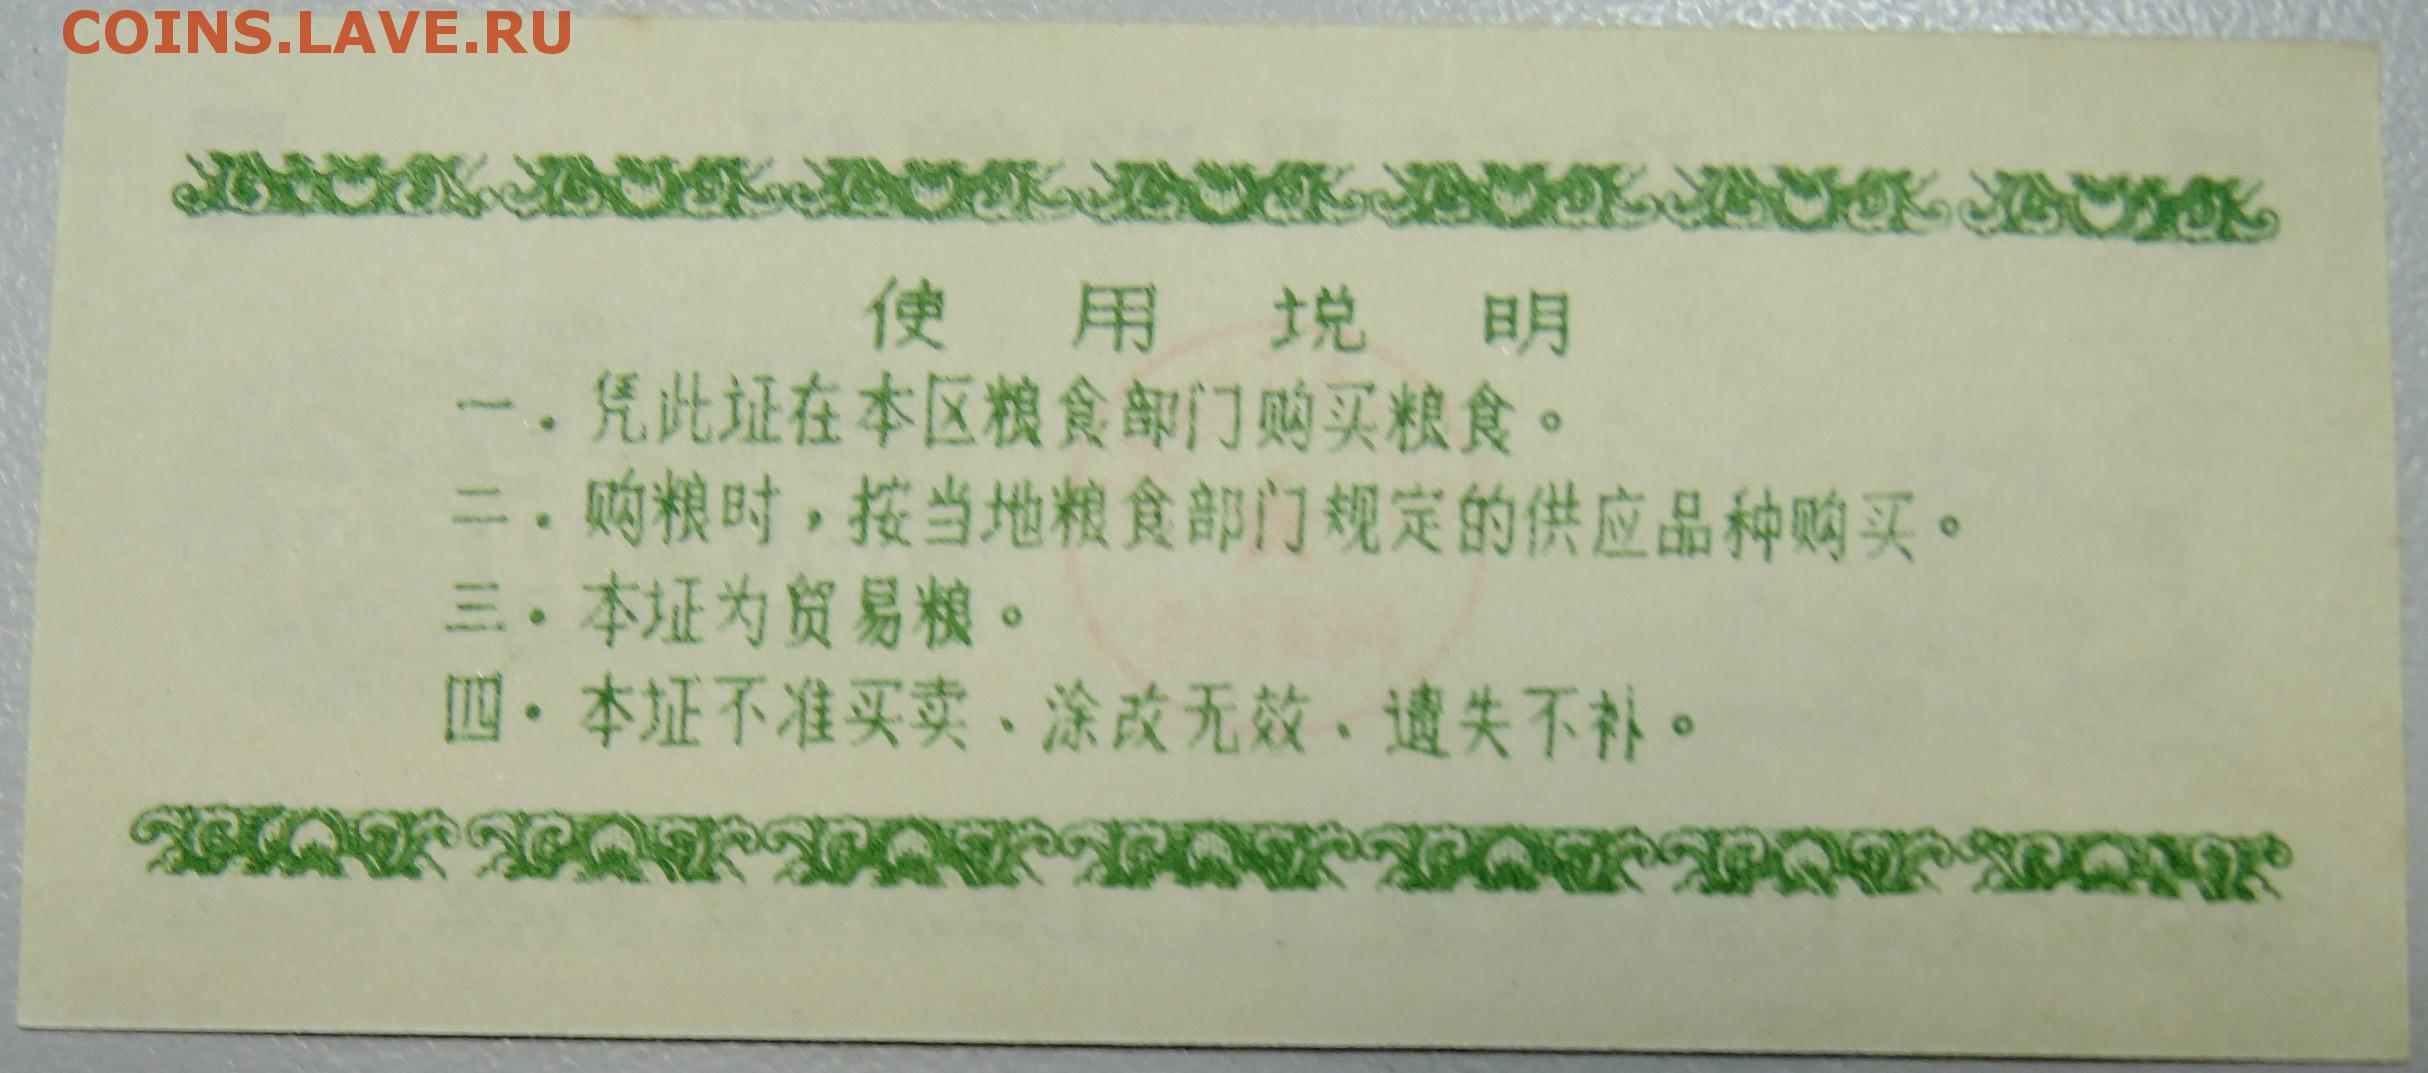 COINS.LAVE.RU
使用说明
一．凭此证在本区粮食部门购买粮食。
二．购粮时，按当地粮食部门规定的供应品种购买。
三．本证为贸易粮。
四．本证不准买卖、涂改无效、遗失不补。